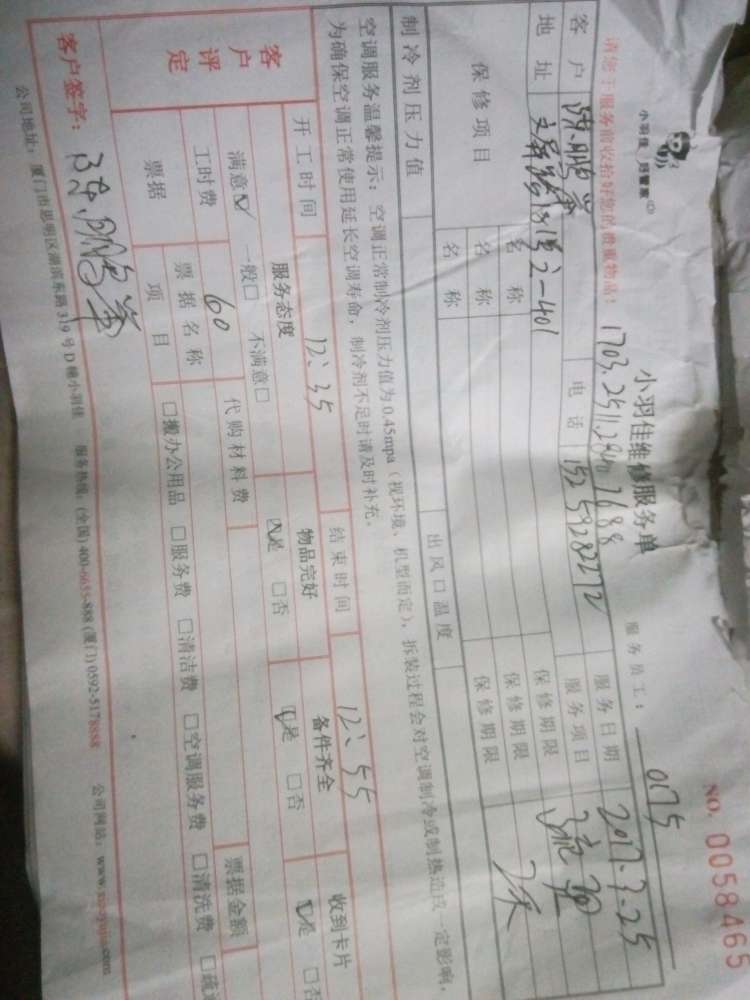 小羽佳 好管家
NO. 0058465
小羽佳维修服务单
服务员工: 0175
请您于服务前收拾好您的贵重物品!
客户 陈鹏 电话 服务日期 2017.7.25
地址 2-401 服务项目
保修项目 名称 保修期限
名称 保修期限
名称 保修期限
制冷剂压力值 出风口温度
空调服务温馨提示:空调正常制冷剂压力值为0.45mpa(视环境、机型而定),拆装过程会对空调制冷或制热造成一定影响,
为确保空调正常使用延长空调寿命,制冷剂不足时请及时补充。
开工时间 12:35 结束时间 12:55
客户评定 服务态度 物品完好 备件齐全 收到卡片
满意☑ 一般□ 不满意□ ☑是 □否 ☑是 □否 ☑是 □否
工时费 60 代购材料费 票据金额
票据 票据名称
项目 □搬办公用品 □服务费 □清洁费 □空调服务费 □清洗费
客户签字: 陈鹏
公司地址:厦门市思明区湖滨东路319号D幢小羽佳 服务热线:(全国)400-6655-888 (厦门)0592-5178888 公司网站: